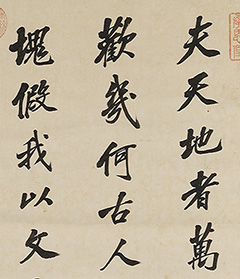 夫天地者萬
歡幾何古人
塊假我以文